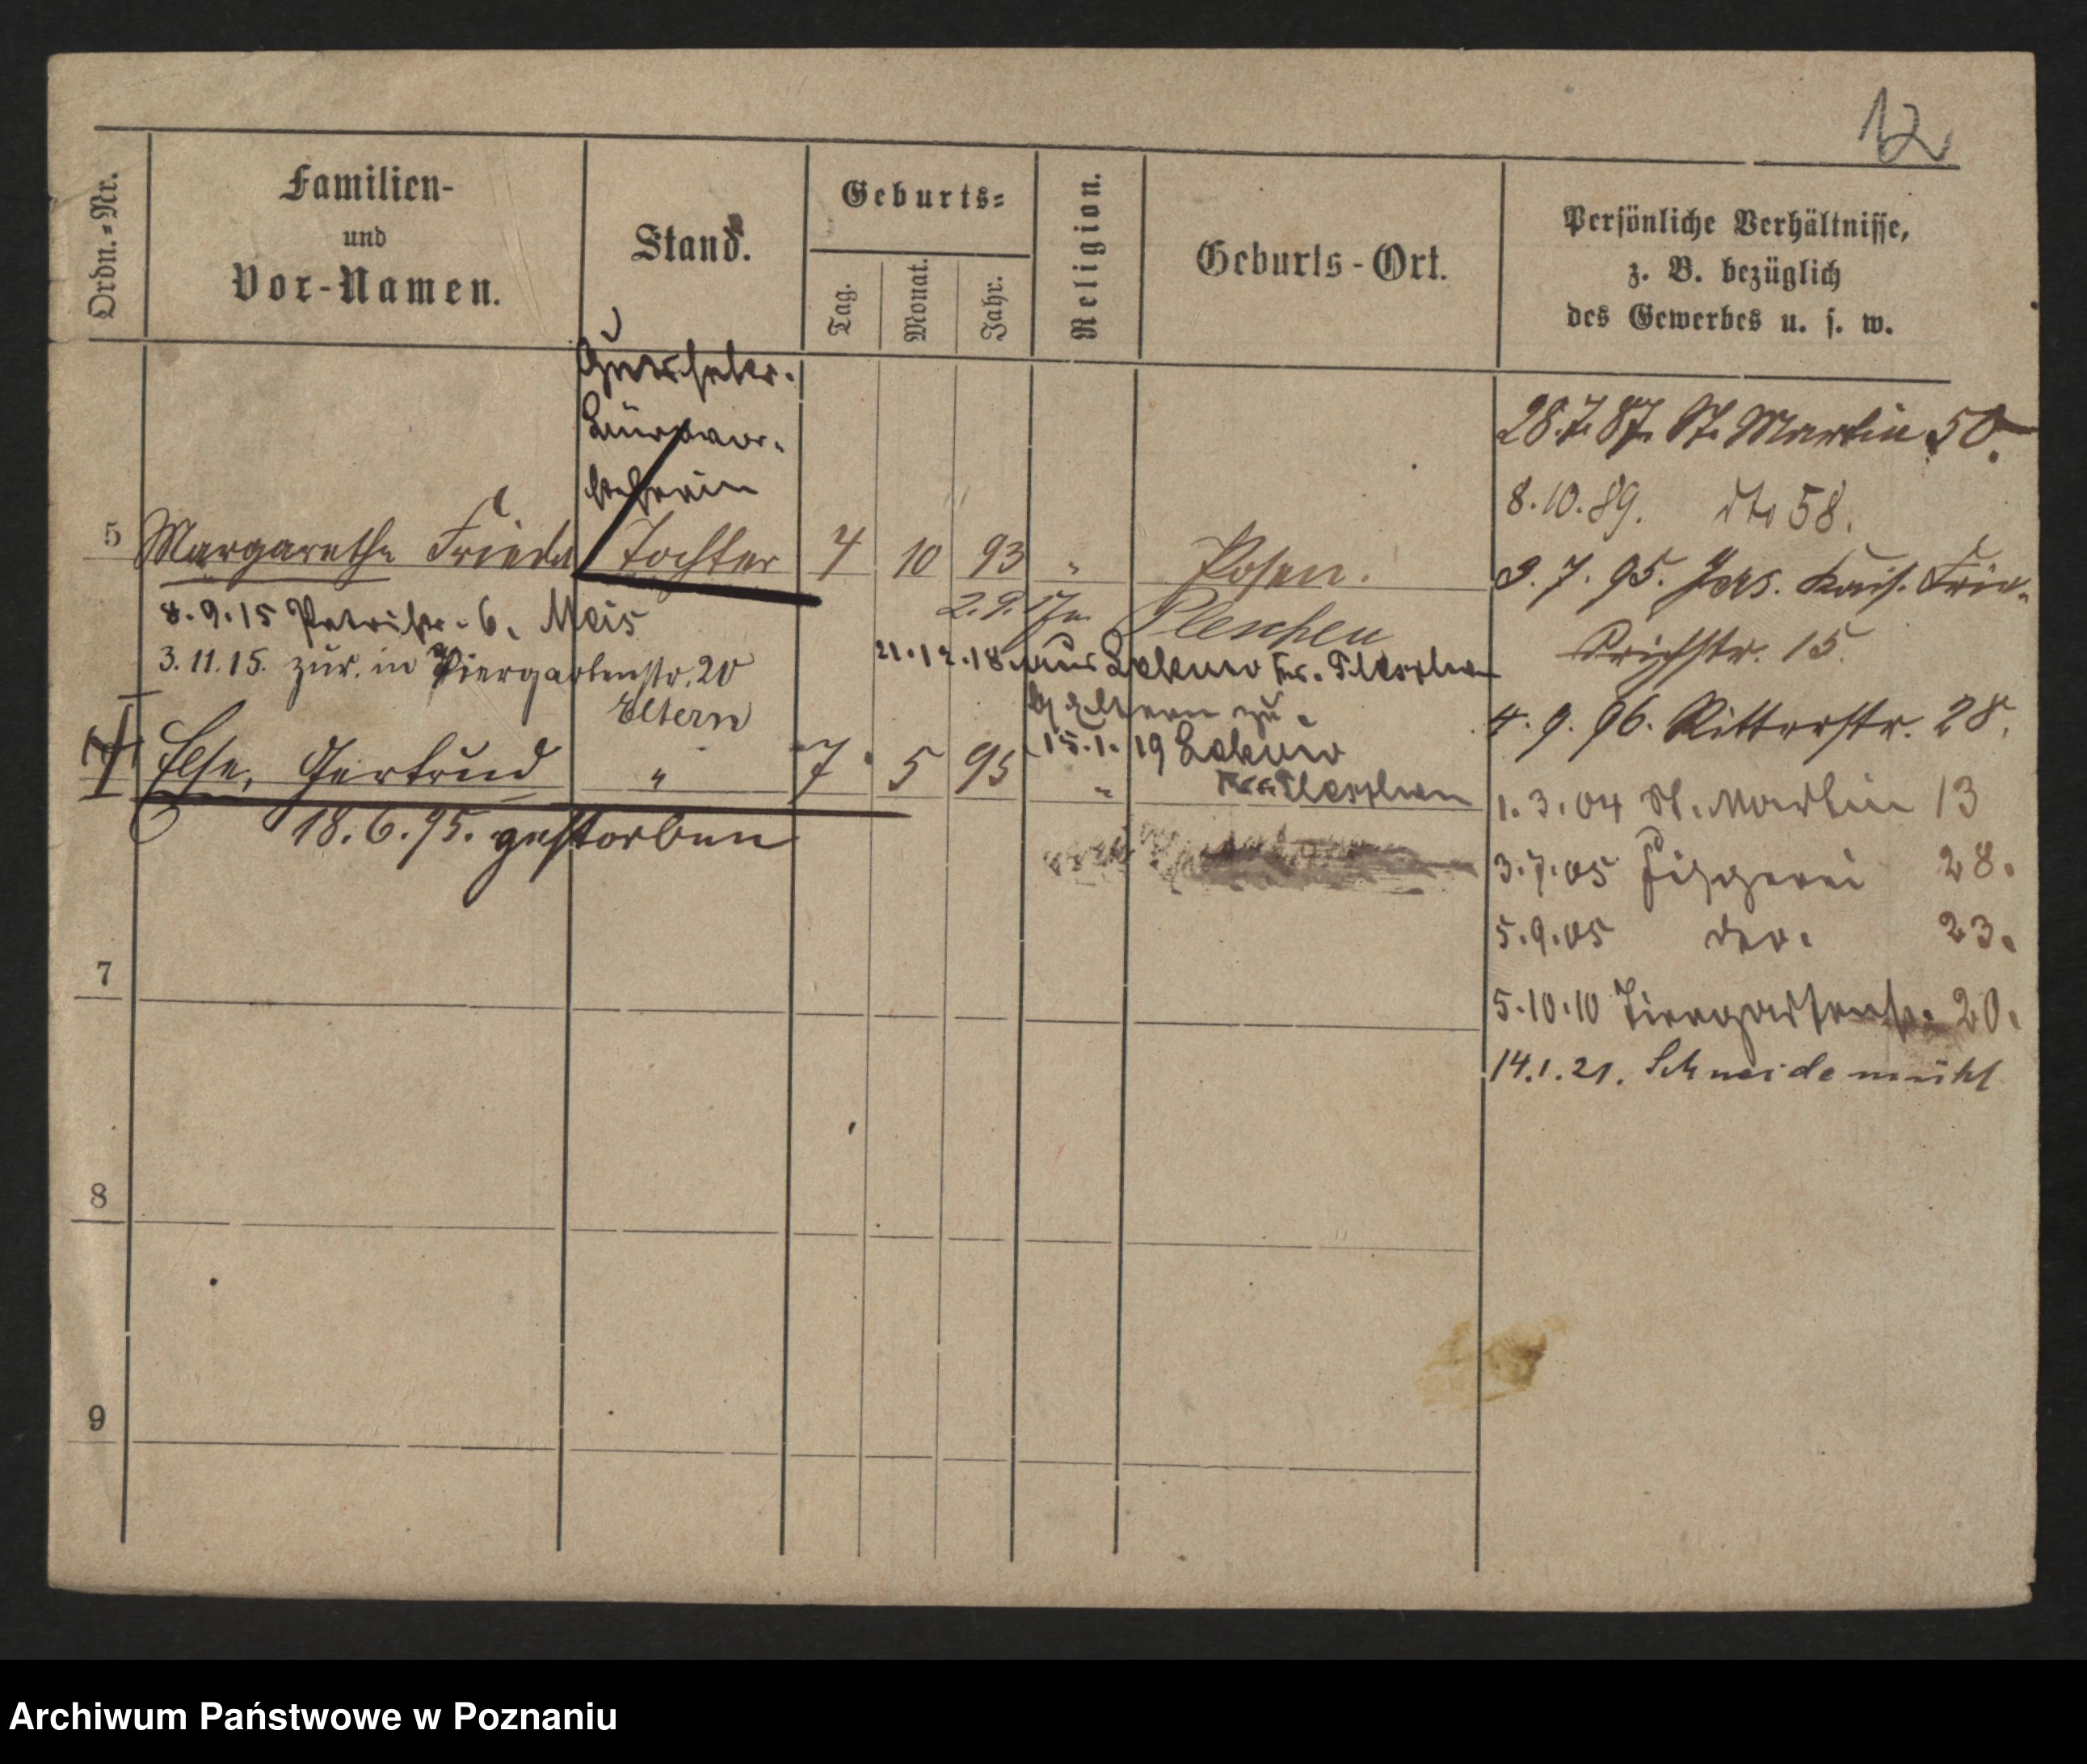 12
Ordn.-Nr.
Familien-
und
Vor-Namen.
Stand.
Geburts-
Tag.
Monat.
Jahr.
Religion.
Geburts-Ort.
Persönliche Verhältnisse,
z. B. bezüglich
des Gewerbes u. s. w.
Bürovor-
steherin
5 Margarethe Frieda Tochter 4 10 93 " Posen.
8.9.15 Patristr. 6.
3.11.15. zur. in Tiergartenstr. 20
Eltern
2.9.17 Pleschen
21.12.18 aus
Eltern zu.
15.1.19
Else, Gertrud " 7 5 95 "
Pleschen
18.6.95. gestorben
28.7.87. St. Martin 50.
8.10.89. dto 58.
3.7.95. Jers. Kais. Frie-
drichstr. 15.
4.9.96. Ritterstr. 28.
1.3.04 St. Martin 13
3.7.05 Fischerei 28.
5.9.05 dto. 23.
5.10.10 Tiergartenstr. 20.
14.1.21. Schneidemühl
7
8
9
Archiwum Państwowe w Poznaniu